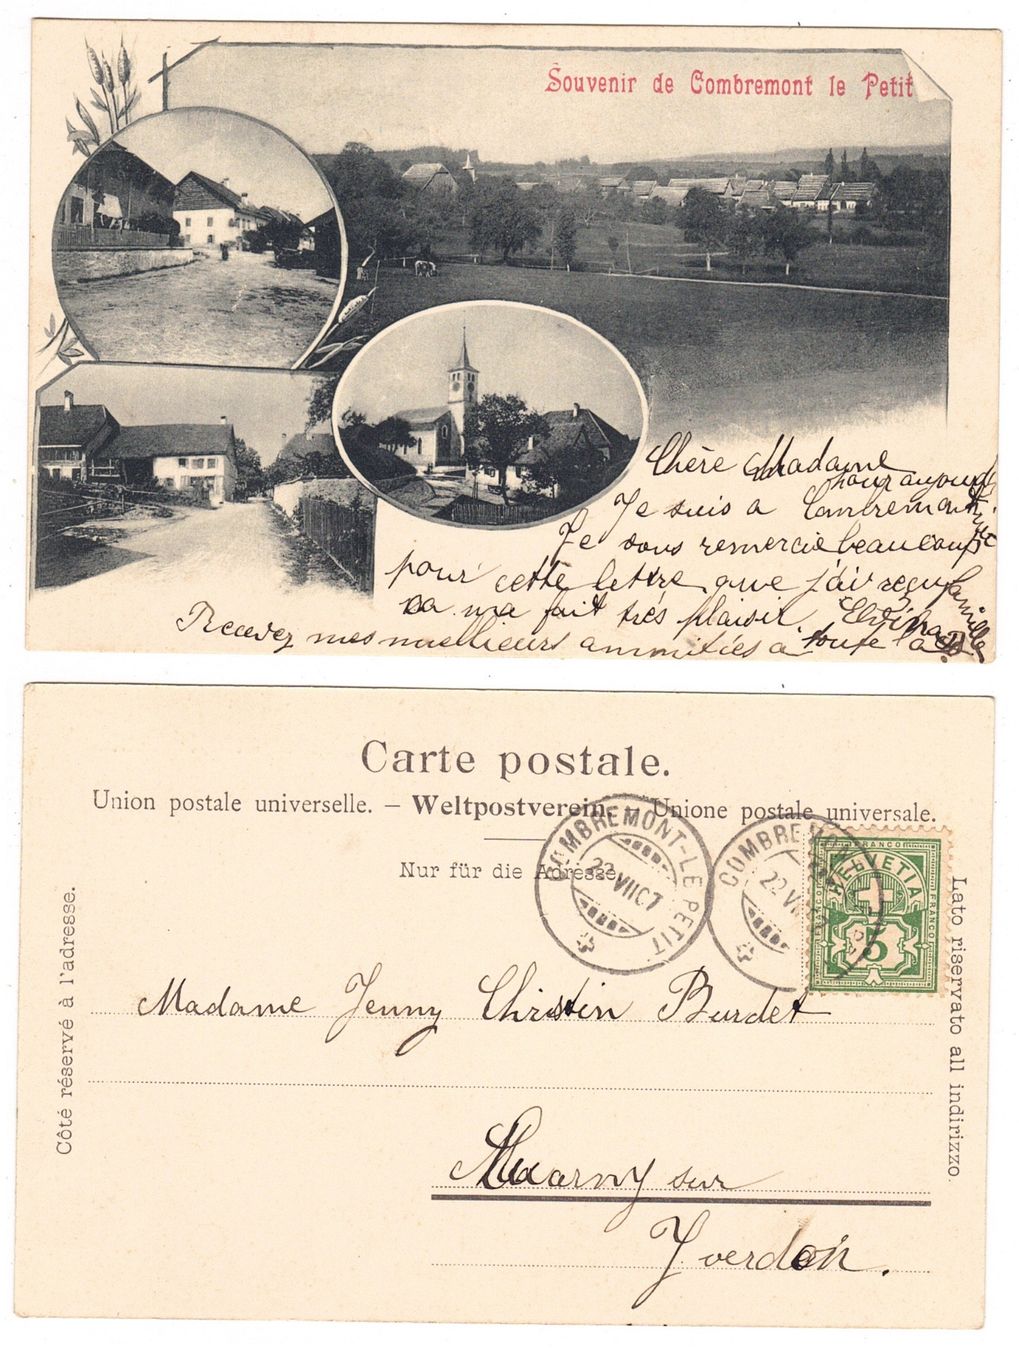 Souvenir de Combremont le Petit
Chère Madame
pour aujourd
Je suis a Combremont
Je vous remercie beaucoup
pour cette lettre que j'ai reçu
ca ma fait très plaisir. Elvina
Recevez mes meilleurs ammitiés a toute la
famille
Carte postale.
Union postale universelle. – Weltpostverein. – Unione postale universale.
Nur für die Adresse.
COMBREMONT-LE PETIT
22 VII 07
COMBREMONT
22 VII
FRANCO
HELVETIA
FRANCO
5
Côté réservé à l'adresse.
Lato riservato all indirizzo.
Madame Jenny Christin Burdet
sur
Yverdon.